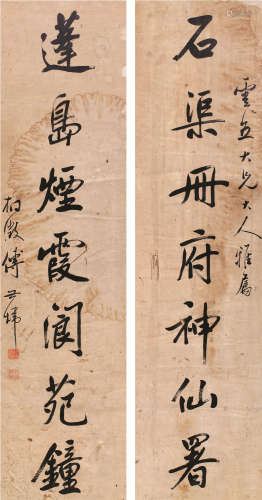 石渠冊府神仙署
雲五大兄大人雅屬
蓬島煙霞閬苑鐘